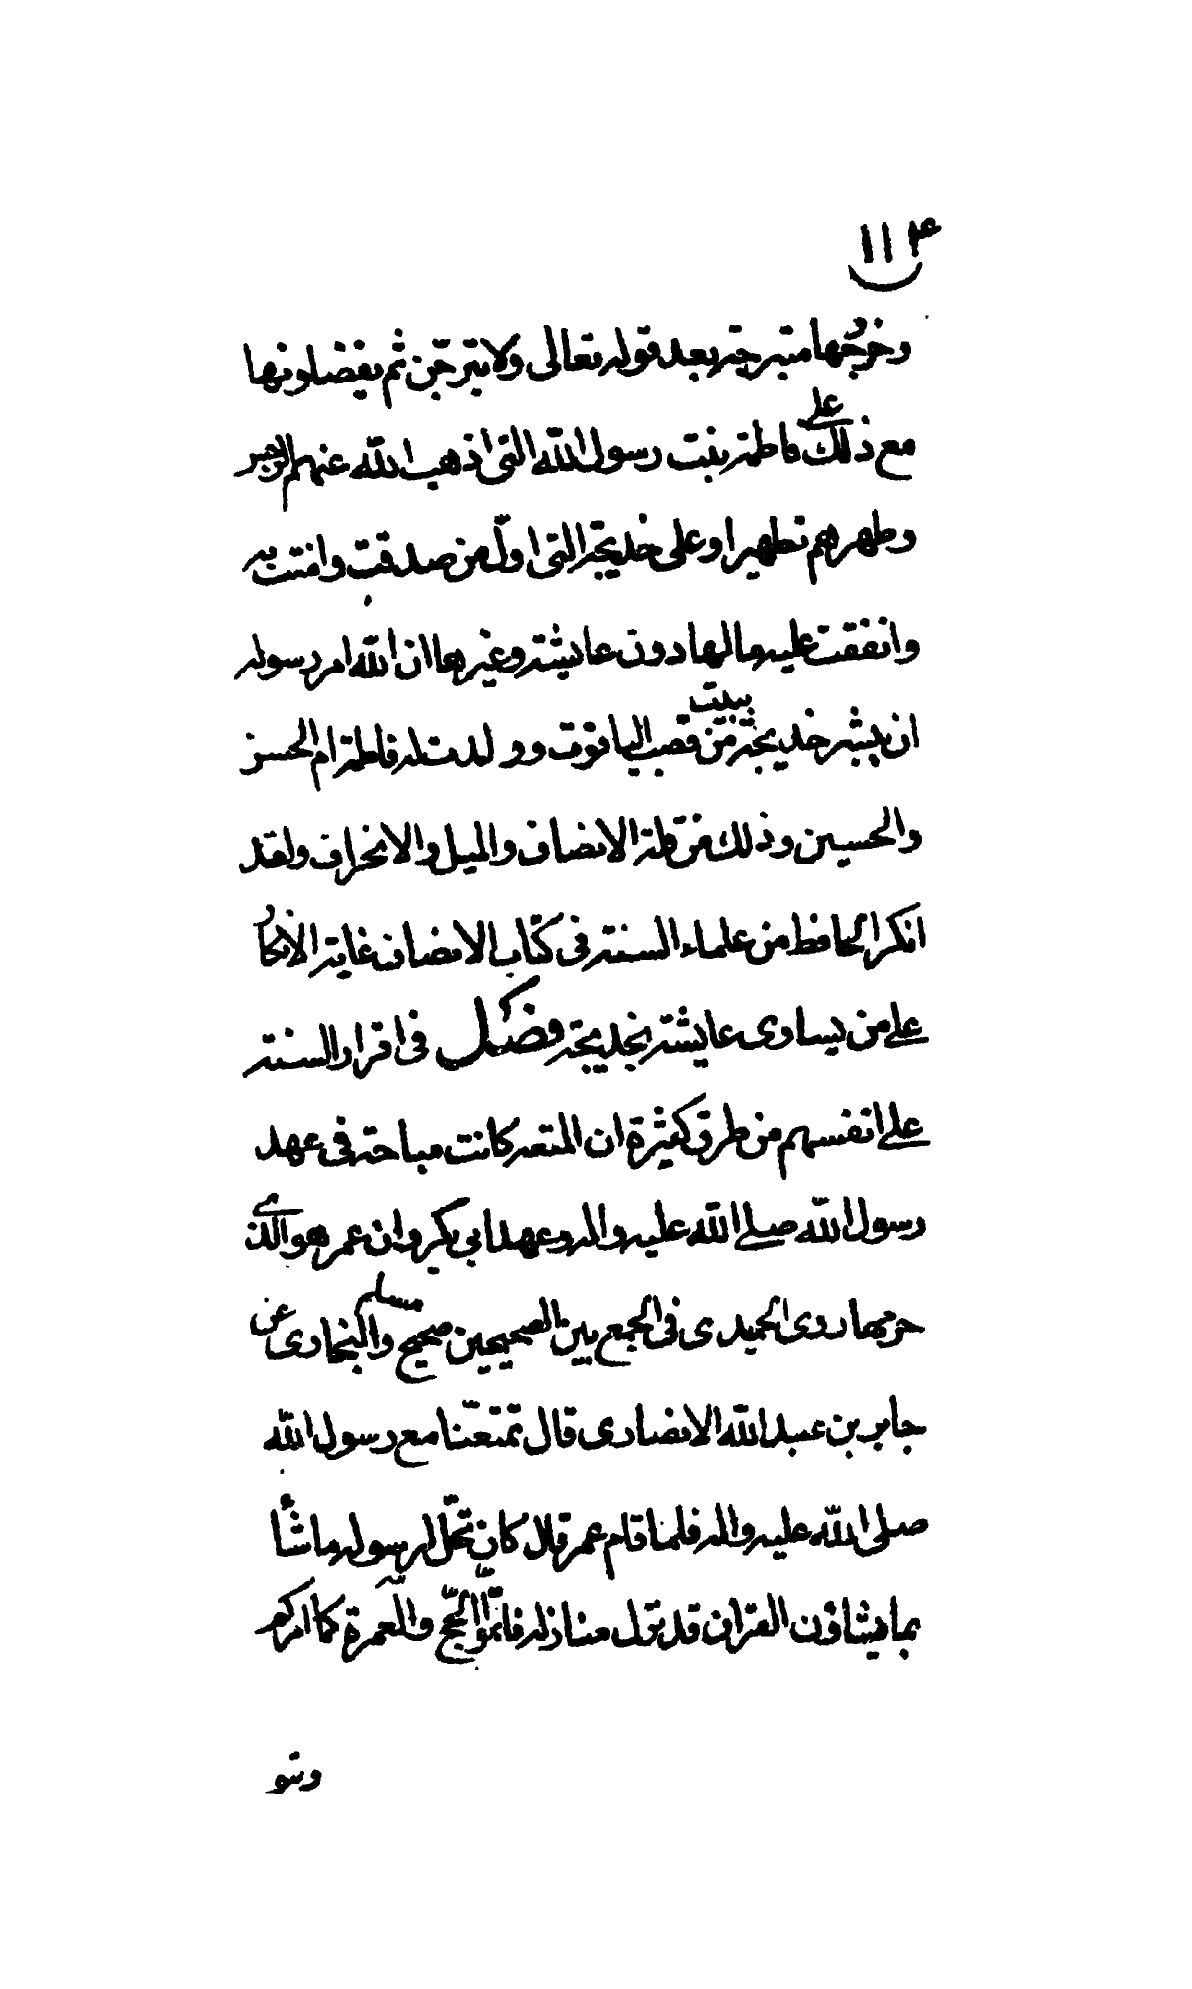 ١١٤
وخروجها متبرجة بعد قوله تعالى ولا تبرّجن ثم يفضلونها
مع ذلك على فاطمة بنت رسول الله التى اذهب الله عنهم الرجس
وطهرهم تطهيرا وعلى خديجة التى اولّ من صدقت وامنت به
وانفقت عليه مالها دون عايشة وغيرها ان الله امر رسوله
ان يبشر خديجة ببيت من قصب الياقوت وولدت له فاطمة ام الحسن
والحسين وذلك من قلة الانصاف والميل والانحراف ولقد
انكر الحافظ من علماء السنة فى كتاب الانصاف غاية الانكار
على من يساوى عايشة بخديجة فصل فى اقرار السنة
على انفسهم من طرق كثيرة ان المتعه كانت مباحة فى عهد
رسول الله صلى الله عليه واله وعهد ابي بكر وان عمر هو الذى
حرمها روى الحميدى فى الجمع بين الصحيحين صحيح مسلم والبخارى عن
جابر بن عبد الله الانصارى قال تمتعّنا مع رسول الله
صلى الله عليه واله فلما قام عمر قال كان تحلّ لرسوله ما شأ
بما يشاؤن القران قد نزل منازله فاتمّوا الحّج والعمرة كما امركم
وبتو